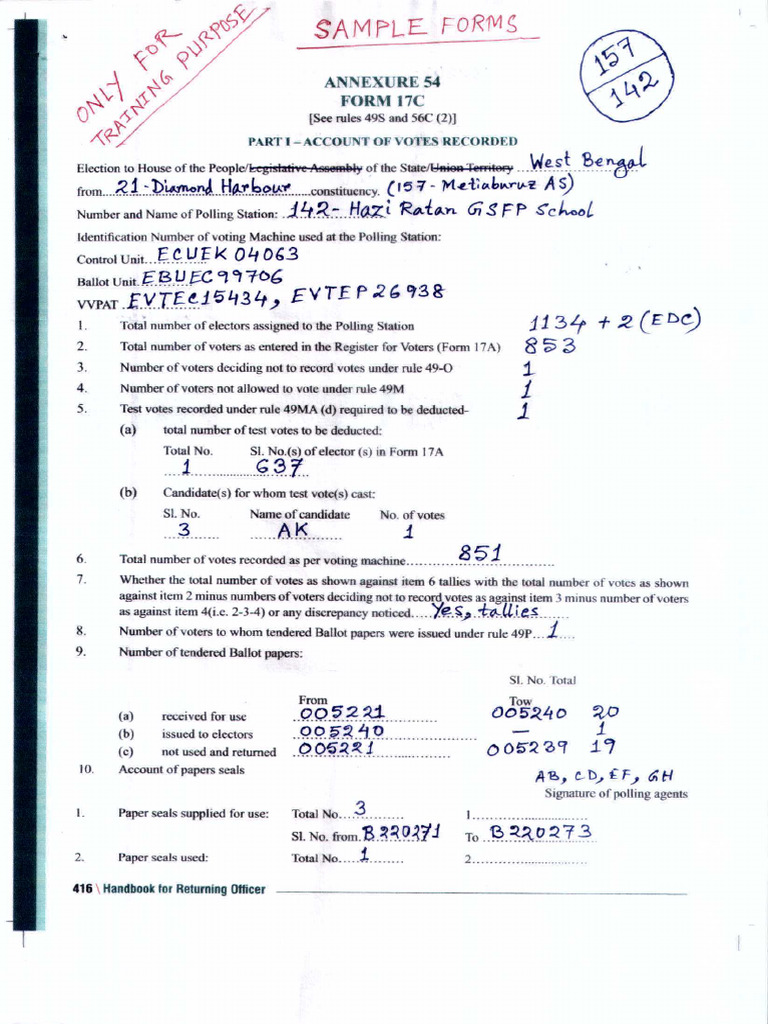 SAMPLE FORMS
ONLY FOR
TRAINING PURPOSE
157
142
ANNEXURE 54
FORM 17C
[See rules 49S and 56C (2)]
PART I – ACCOUNT OF VOTES RECORDED
Election to House of the People/Legislative Assembly of the State/Union Territory West Bengal
from 21-Diamond Harbour constituency. (157- Metiaburuz AS)
Number and Name of Polling Station: 142- Hazi Ratan GSFP School
Identification Number of voting Machine used at the Polling Station:
Control Unit ECUEK 04063
Ballot Unit EBUEC99706
VVPAT EVTEC15434, EVTEP26938
1. Total number of electors assigned to the Polling Station 1134 + 2 (EDC)
2. Total number of voters as entered in the Register for Voters (Form 17A) 853
3. Number of voters deciding not to record votes under rule 49-O 1
4. Number of voters not allowed to vote under rule 49M 1
5. Test votes recorded under rule 49MA (d) required to be deducted- 1
(a) total number of test votes to be deducted:
Total No. Sl. No.(s) of elector (s) in Form 17A
1 637
(b) Candidate(s) for whom test vote(s) cast:
Sl. No. Name of candidate No. of votes
3 AK 1
6. Total number of votes recorded as per voting machine 851
7. Whether the total number of votes as shown against item 6 tallies with the total number of votes as shown
against item 2 minus numbers of voters deciding not to record votes as against item 3 minus number of voters
as against item 4(i.e. 2-3-4) or any discrepancy noticed Yes, tallies
8. Number of voters to whom tendered Ballot papers were issued under rule 49P 1
9. Number of tendered Ballot papers:
Sl. No. Total
From Tow
(a) received for use 005221 005240 20
(b) issued to electors 005240 — 1
(c) not used and returned 005221 005239 19
10. Account of papers seals AB, CD, EF, GH
Signature of polling agents
1. Paper seals supplied for use: Total No. 3 1
Sl. No. from B220271 To B220273
2. Paper seals used: Total No. 1 2
416 \ Handbook for Returning Officer